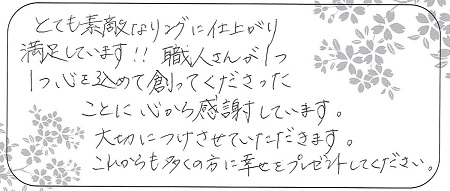 とても素敵なリングに仕上がり
満足しています!! 職人さんが1つ
1つ、心を込めて創ってくださった
ことに心から感謝しています。
大切につけさせていただきます。
これからも多くの方に幸せをプレゼントしてください。